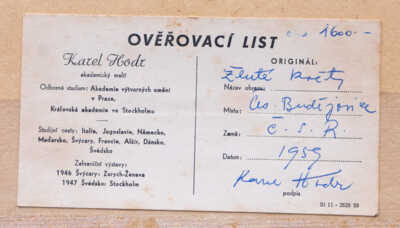 OVĚŘOVACÍ LIST
1600.-
Karel Hodr
akademický malíř
Odborná studium: Akademie výtvarných umění
v Praze,
Královská akademie ve Stockholmu
Studijní cesty: Italie, Jugoslavie, Německo,
Maďarsko, Švýcary, Francie, Alžír, Dánsko,
Švédsko
Zahraniční výstavy:
1946 Švýcary: Zurych-Ženeva
1947 Švédsko: Stockholm
ORIGINÁL:
Žluté květy
Název obrazu:
Místo: Čes. Budějovice
Země: Č. S. R.
Datum: 1959
Karel Hodr
podpis
St 11 - 2628 59